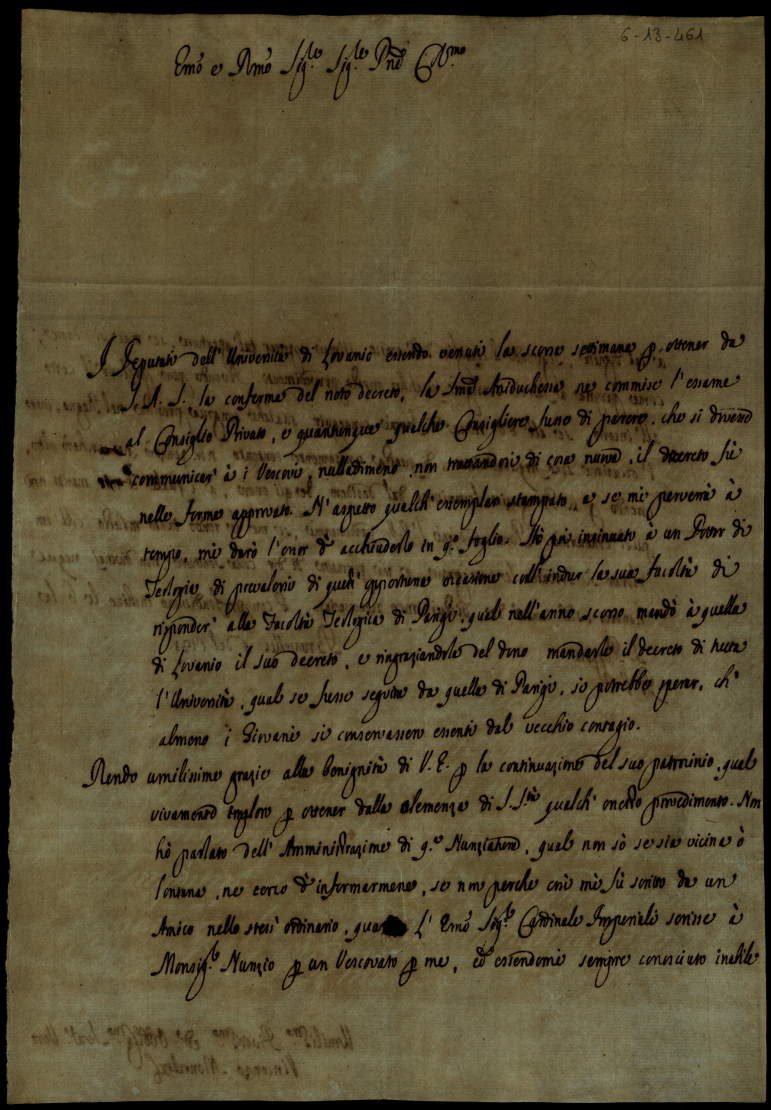 6-13-461
Emo e Rmo Sigre Sigre Pne Colmo
I Deputati dell'Università di Lovanio essendo venuti la scorsa settimana p ottener da
S. A. S. la conferma del noto decreto, la Sma Arciduchessa ne commise l'essame
al Consiglio Privato, e quantunque qualche Consigliere fusse di parere, che si dovesse
communicar' à i Vescovi, nulladimeno non trattandosi di cosa nuova, il decreto fù
nelle forme approvato. N'aspetto qualch'essemplar stampato, e se mi perverrà à
tempo, mi darò l'onor d'acchiuderlo in qo foglio. Hò poi insinuato à un Dottor di
Teologia di prevalersi di quest'opportuna occasione coll'indur la sua facoltà di
risponder' alla Facoltà Teologica di Parigi, quale nell'anno scorso mandò à quella
di Lovanio il suo decreto, e ringraziandola del dono mandarle il decreto di tutta
l'Università, qual se fusse seguito da quella di Parigi, si potrebbe sperar, ch'
almeno i Giovani si conservassero essenti dal vecchio contagio.
Rendo umilissime grazie alla benignità di V. E. p la continuazione del suo patrocinio, qual
vivamente imploro p ottener dalla clemenza di S. Stà qualch' onesto provedimento. Non
hò parlato dell'Amministrazione di qa Nunziatura, qual non sò se sia vicina ò
lontana, ne cerco d'informarmene, se non perche così mi fù scritto da un
Amico nello stess' ordinario, L'Emo Sigre Cardinale Imperiali scrisse à
Monsigre Nunzio p un Vescovato p me, ed essendomi sempre conosciuto inabile